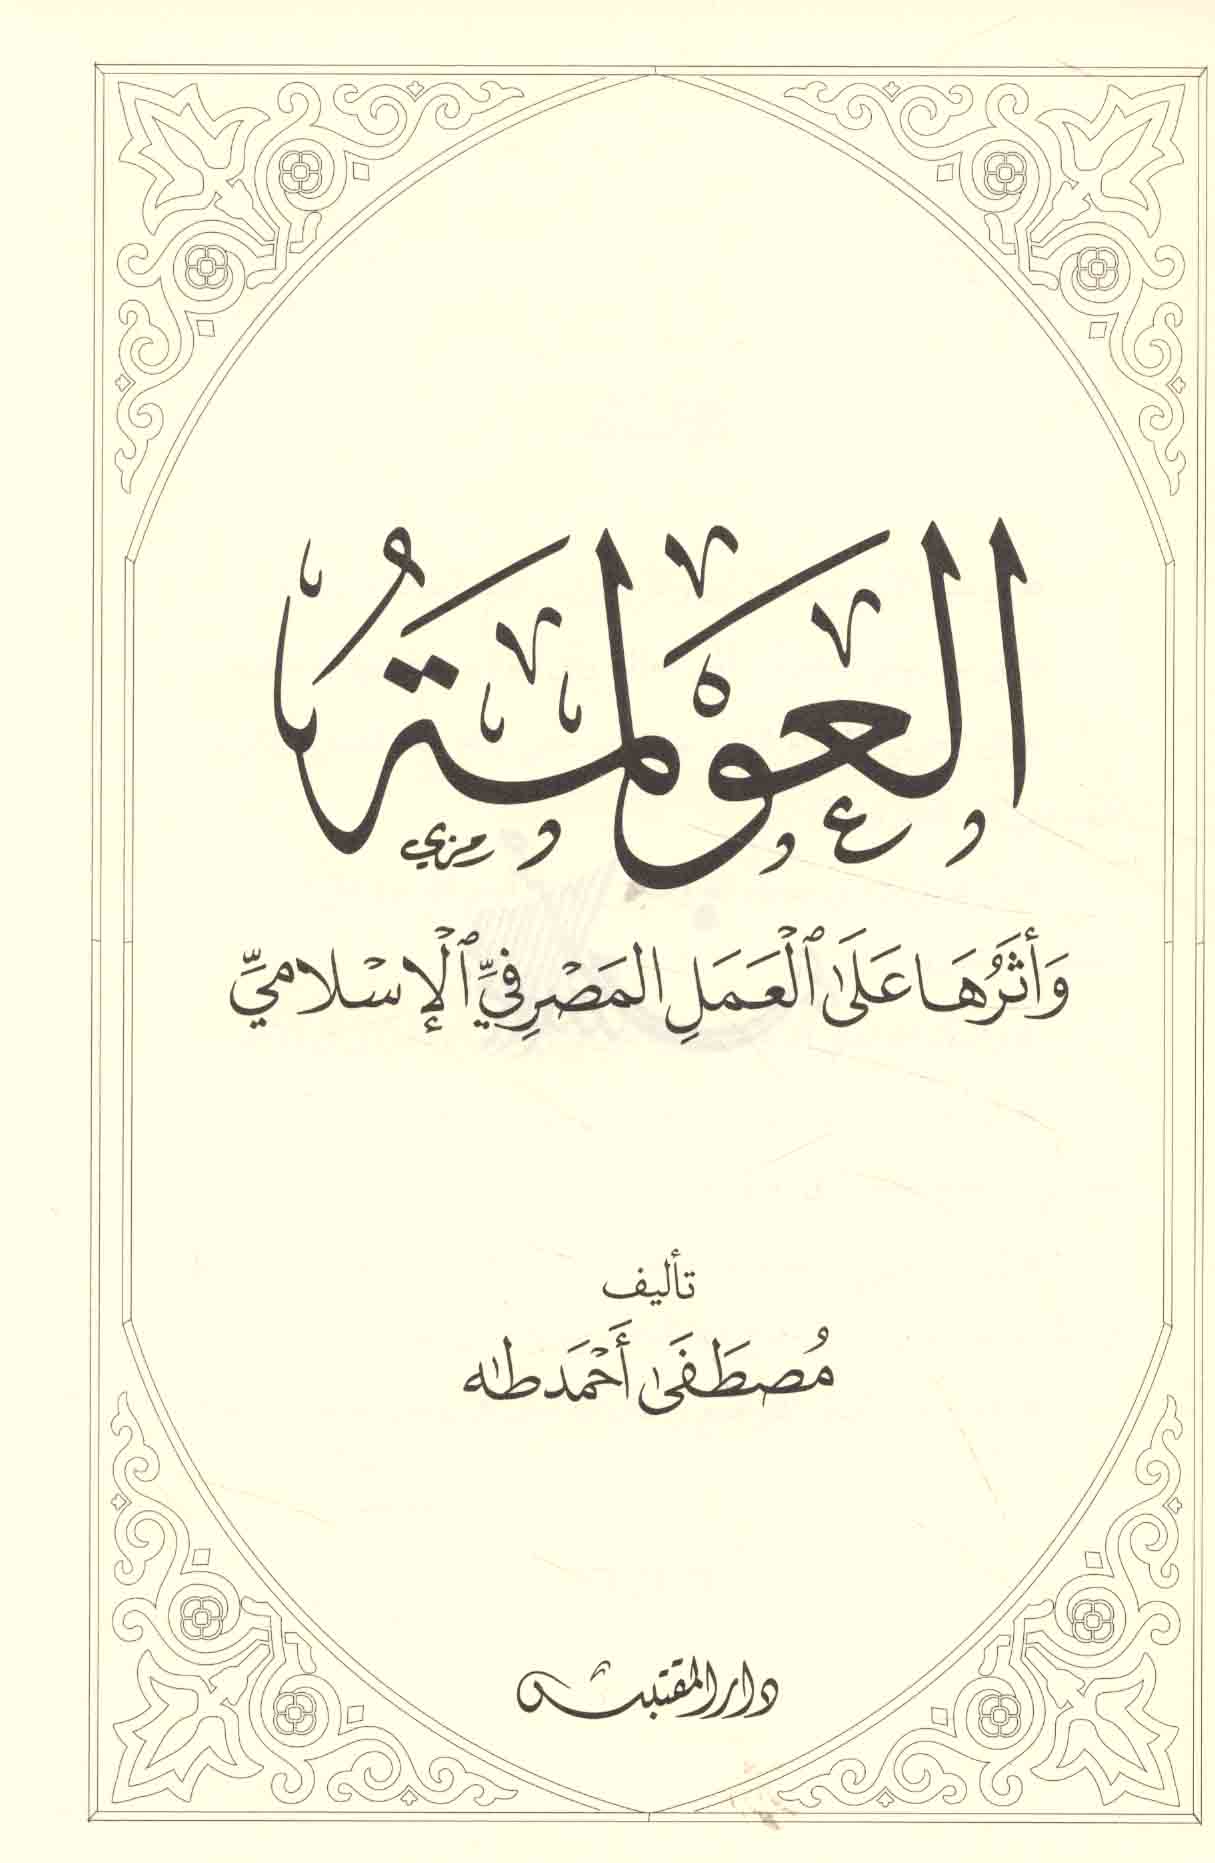 العولمةُ
رمزي
وَأَثَرُهَا عَلَى ٱلْعَمَلِ المَصْرِفيِّ ٱلْإِسْلاميِّ
تأليف
مُصطَفَى أَحْمَد طه
دار المقتبس